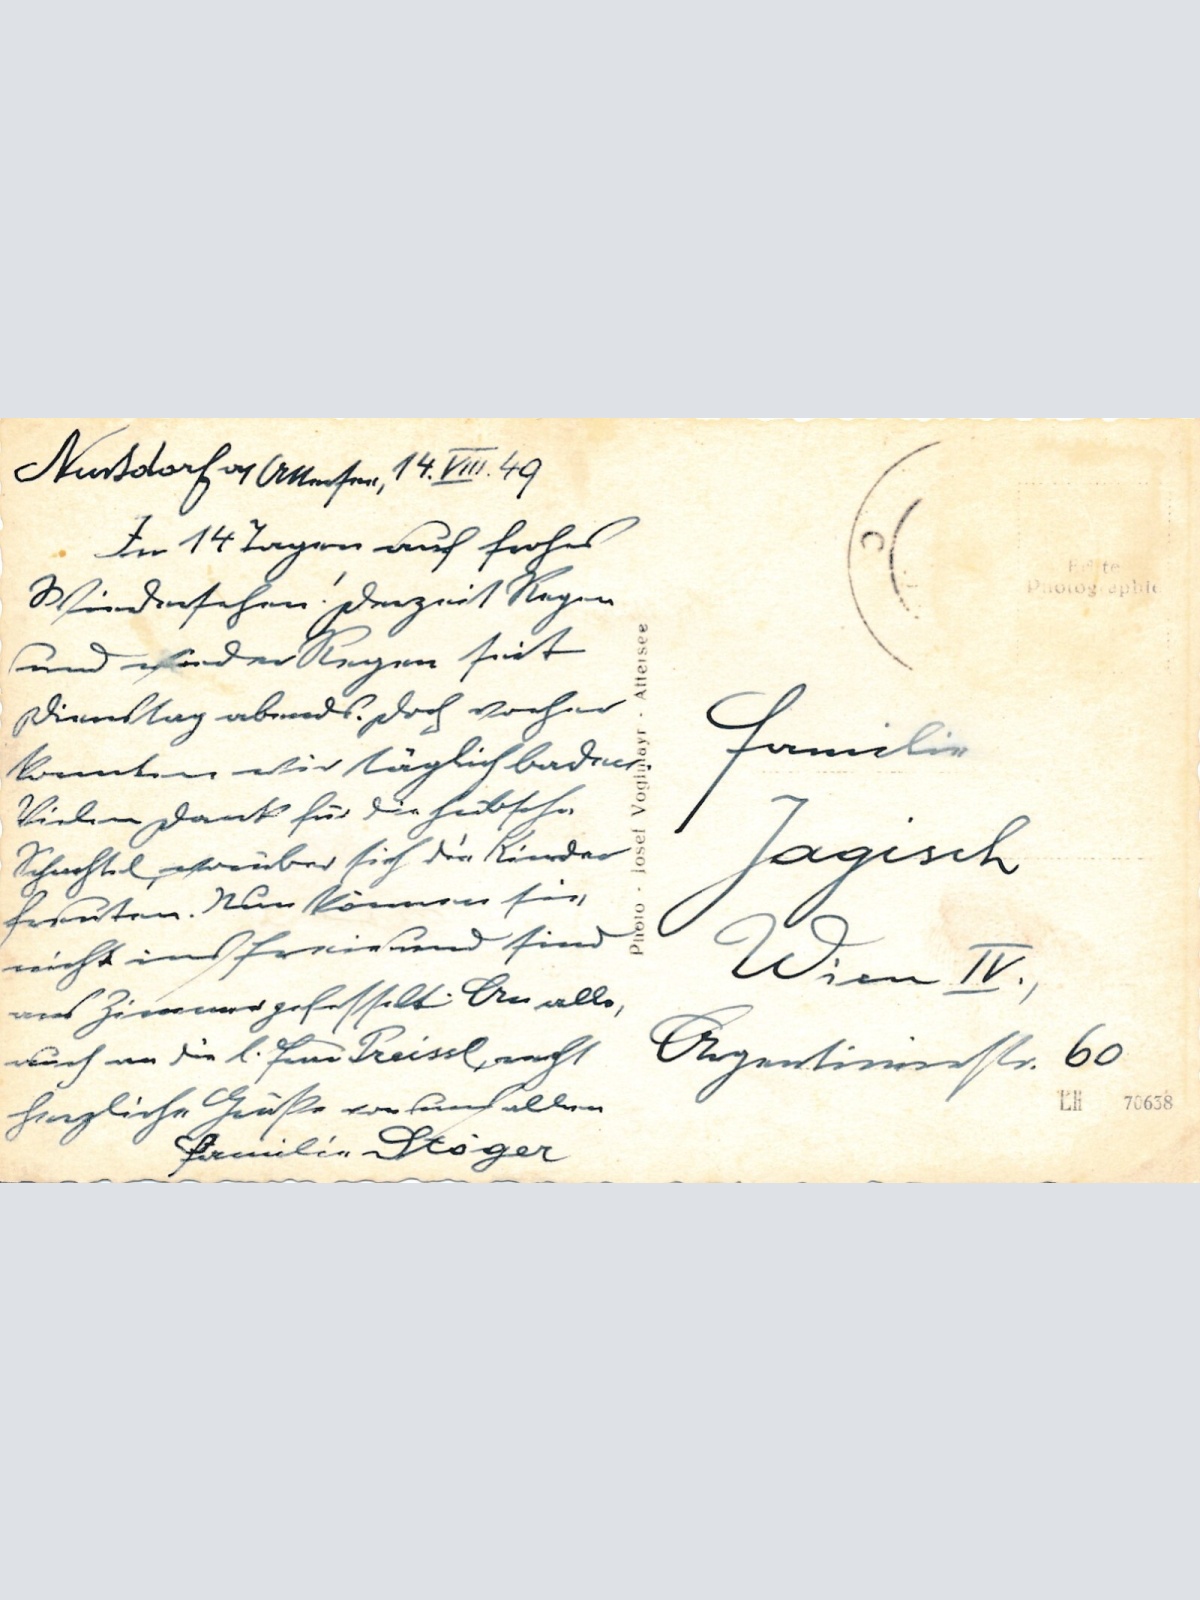 Nussdorf am Attersee, 14. VIII. 49
In 14 Tagen auf frohes
Wiedersehen! Derzeit Regen
und wieder Regen seit
Dienstag abends. Doch vorher
konnten wir täglich baden.
Vielen Dank für die hübsche
Schachtel, worüber sich die Kinder
freuten. Nun können sie
nicht ins Freie und sind
ans Zimmer gefesselt. An alle,
auch an die l. Frau Preissl, recht
herzliche Grüße von uns allen
Familie Stöger
Photo · Josef Voglmayr · Attersee
Echte
Photographie
Familie
Jagisch
Wien IV.,
Argentinierstr. 60
70638